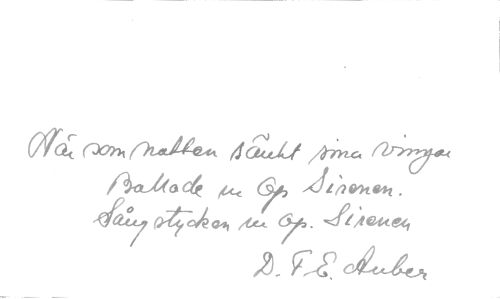 När som natten sänkt sina vingar
Ballade ur Op Sirenen.
Sångstycken ur op. Sirenen
D. F. E. Auber